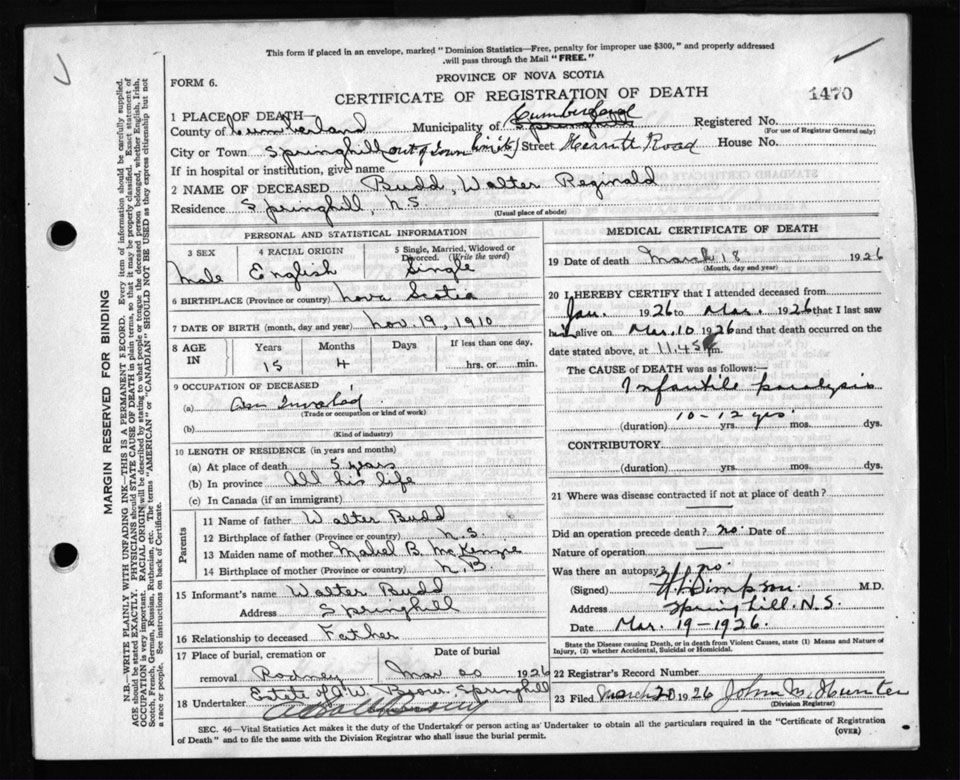 This form if placed in an envelope, marked "Dominion Statistics—Free, penalty for improper use $300," and properly addressed
.will pass through the Mail "FREE."
FORM 6.
PROVINCE OF NOVA SCOTIA
CERTIFICATE OF REGISTRATION OF DEATH
1470
1 PLACE OF DEATH—
County of Cumberland Municipality of Cumberland Springhill Registered No.
(For use of Registrar General only)
City or Town Springhill (out of town limits) Street Herritt Road House No.
If in hospital or institution, give name
2 NAME OF DECEASED Budd, Walter Reginald
Residence Springhill, N.S.
(Usual place of abode)
PERSONAL AND STATISTICAL INFORMATION
3 SEX 4 RACIAL ORIGIN 5 Single, Married, Widowed or Divorced. (Write the word)
Male English Single
6 BIRTHPLACE (Province or country) Nova Scotia
7 DATE OF BIRTH (month, day and year) Nov. 19, 1910
8 AGE IN Years Months Days If less than one day,
15 4 hrs. or min.
9 OCCUPATION OF DECEASED
(a) an Invalid
(Trade or occupation or kind of work)
(b)
(Kind of industry)
10 LENGTH OF RESIDENCE (in years and months)
(a) At place of death 5 years
(b) In province All his life
(c) In Canada (if an immigrant)
Parents
11 Name of father Walter Budd
12 Birthplace of father (Province or country) N.S.
13 Maiden name of mother Mabel B. McKenzie
14 Birthplace of mother (Province or country) N.B.
15 Informant's name Walter Budd
Address Springhill
16 Relationship to deceased Father
17 Place of burial, cremation or removal Date of burial
Rodney Mar 20 1926
18 Undertaker Estate of J.W. Brown, Springhill
MEDICAL CERTIFICATE OF DEATH
19 Date of death March 18 1926
(Month, day and year)
20 I HEREBY CERTIFY that I attended deceased from
Jan. 1926 to Mar. 1926 that I last saw
him alive on Mar. 10 1926 and that death occurred on
date stated above, at 11.45 m.
The CAUSE of DEATH was as follows:—
Infantile paralysis
10-12 yrs.
(duration) yrs. mos. dys.
CONTRIBUTORY
(duration) yrs. mos. dys.
21 Where was disease contracted if not at place of death?
Did an operation precede death? no. Date of
Nature of operation
Was there an autopsy? no.
(Signed) Simpson M.D.
Address Springhill. N.S.
Date Mar. 19-1926.
State the Disease causing Death, or in death from Violent Causes, state (1) Means and Nature of
Injury, (2) whether Accidental, Suicidal or Homicidal.
22 Registrar's Record Number
23 Filed March 20 1926 John M. Hunter
(Division Registrar)
SEC. 46—Vital Statistics Act makes it the duty of the Undertaker or person acting as Undertaker to obtain all the particulars required in the "Certificate of Registration
of Death" and to file the same with the Division Registrar who shall issue the burial permit.
(OVER)
MARGIN RESERVED FOR BINDING
N.B.—WRITE PLAINLY WITH UNFADING INK—THIS IS A PERMANENT RECORD. Every item of information should be carefully supplied.
AGE should be stated EXACTLY. PHYSICIANS should STATE CAUSE OF DEATH in plain terms, so that it may be properly classified. Exact statement of
OCCUPATION is very important. RACIAL ORIGIN will be described by stating to what people or tongue the deceased person belonged, whether English, Irish,
Scotch, French, German, Russian, Ruthenian, etc. The terms "AMERICAN" or "CANADIAN" SHOULD NOT BE USED as they express citizenship but not
a race or people. See instructions on back of Certificate.